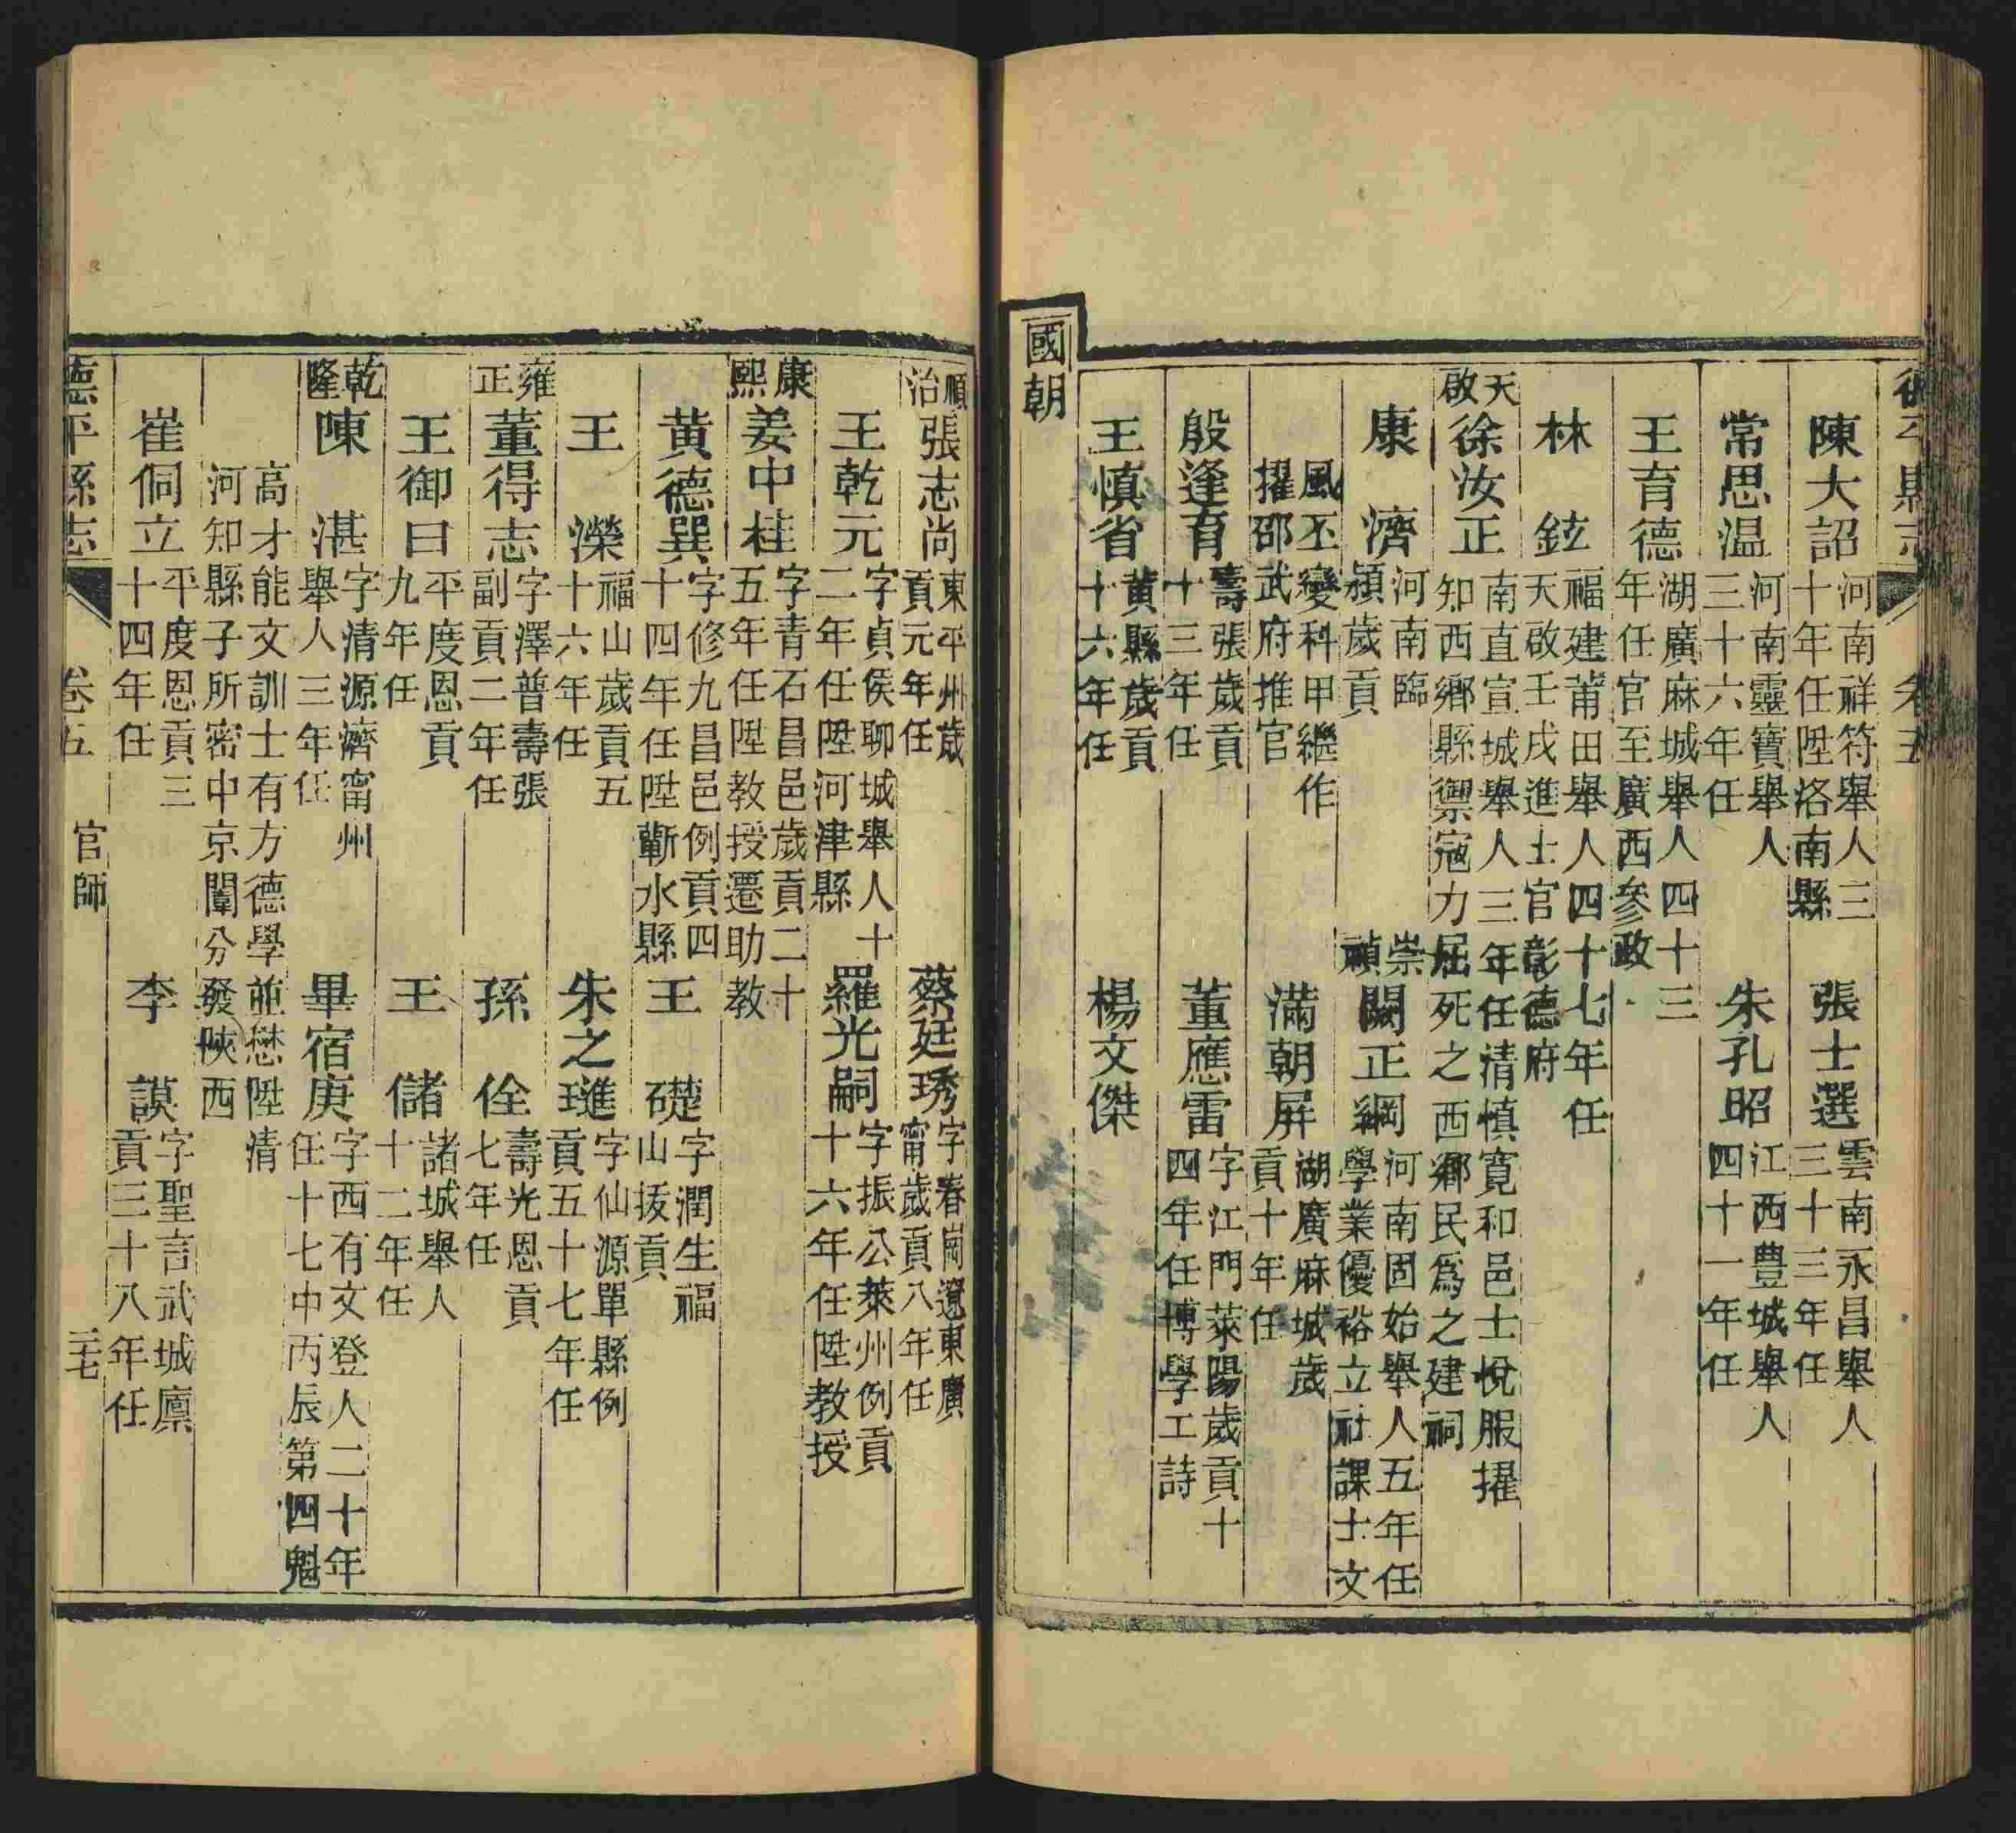 德平縣志
卷五
陳大詔 河南祥符舉人三十年任陞洛南縣
張士選 雲南永昌舉人三十三年任
常思温 河南靈寶舉人三十六年任
朱孔昭 江西豐城舉人四十一年任
王育德 湖廣麻城舉人四十三年任官至廣西參政
林鉉 福建莆田舉人四十七年任天啟壬戌進士官彰德府
天啟
徐汝正 南直宣城舉人三年任清慎寬和邑士悅服擢知西鄉縣禦寇力屈死之西鄉民爲之建祠
康濟 河南臨潁歲貢
崇禎
闕正綱 河南固始舉人五年任學業優裕立社課士文
風丕變科甲繼作擢邵武府推官
滿朝屏 湖廣麻城歲貢十年任
殷逢育 壽張歲貢十三年任
董應雷 字江門萊陽歲貢十四年任博學工詩
王慎省 黃縣歲貢十六年任
楊文傑
國朝
順治
張志尚 東平州歲貢元年任
蔡廷琇 字春崗遼東廣甯歲貢八年任
王乾元 字貞侯聊城舉人十二年任陞河津縣
羅光嗣 字振公萊州例貢十六年任陞教授
康熙
姜中桂 字青石昌邑歲貢二十五年任陞教授遷助教
黃德巽 字修九昌邑例貢四十四年任陞蘄水縣
王礎 字潤生福山拔貢
王濼 福山歲貢五十六年任
朱之璡 字仙源單縣例貢五十七年任
雍正
董得志 字澤普壽張副貢二年任
孫佺 壽光恩貢七年任
王御曰 平度恩貢九年任
王儲 諸城舉人十二年任
乾隆
陳湛 字清源濟甯州舉人三年任
畢宿庚 字西有文登人二十年任十七中丙辰第四魁
高才能文訓士有方德學並懋陞清河知縣子所密中京闈分發陝西
崔侗立 平度恩貢三十四年任
李謨 字聖言武城廪貢三十八年任
德平縣志
卷五
官師
三七